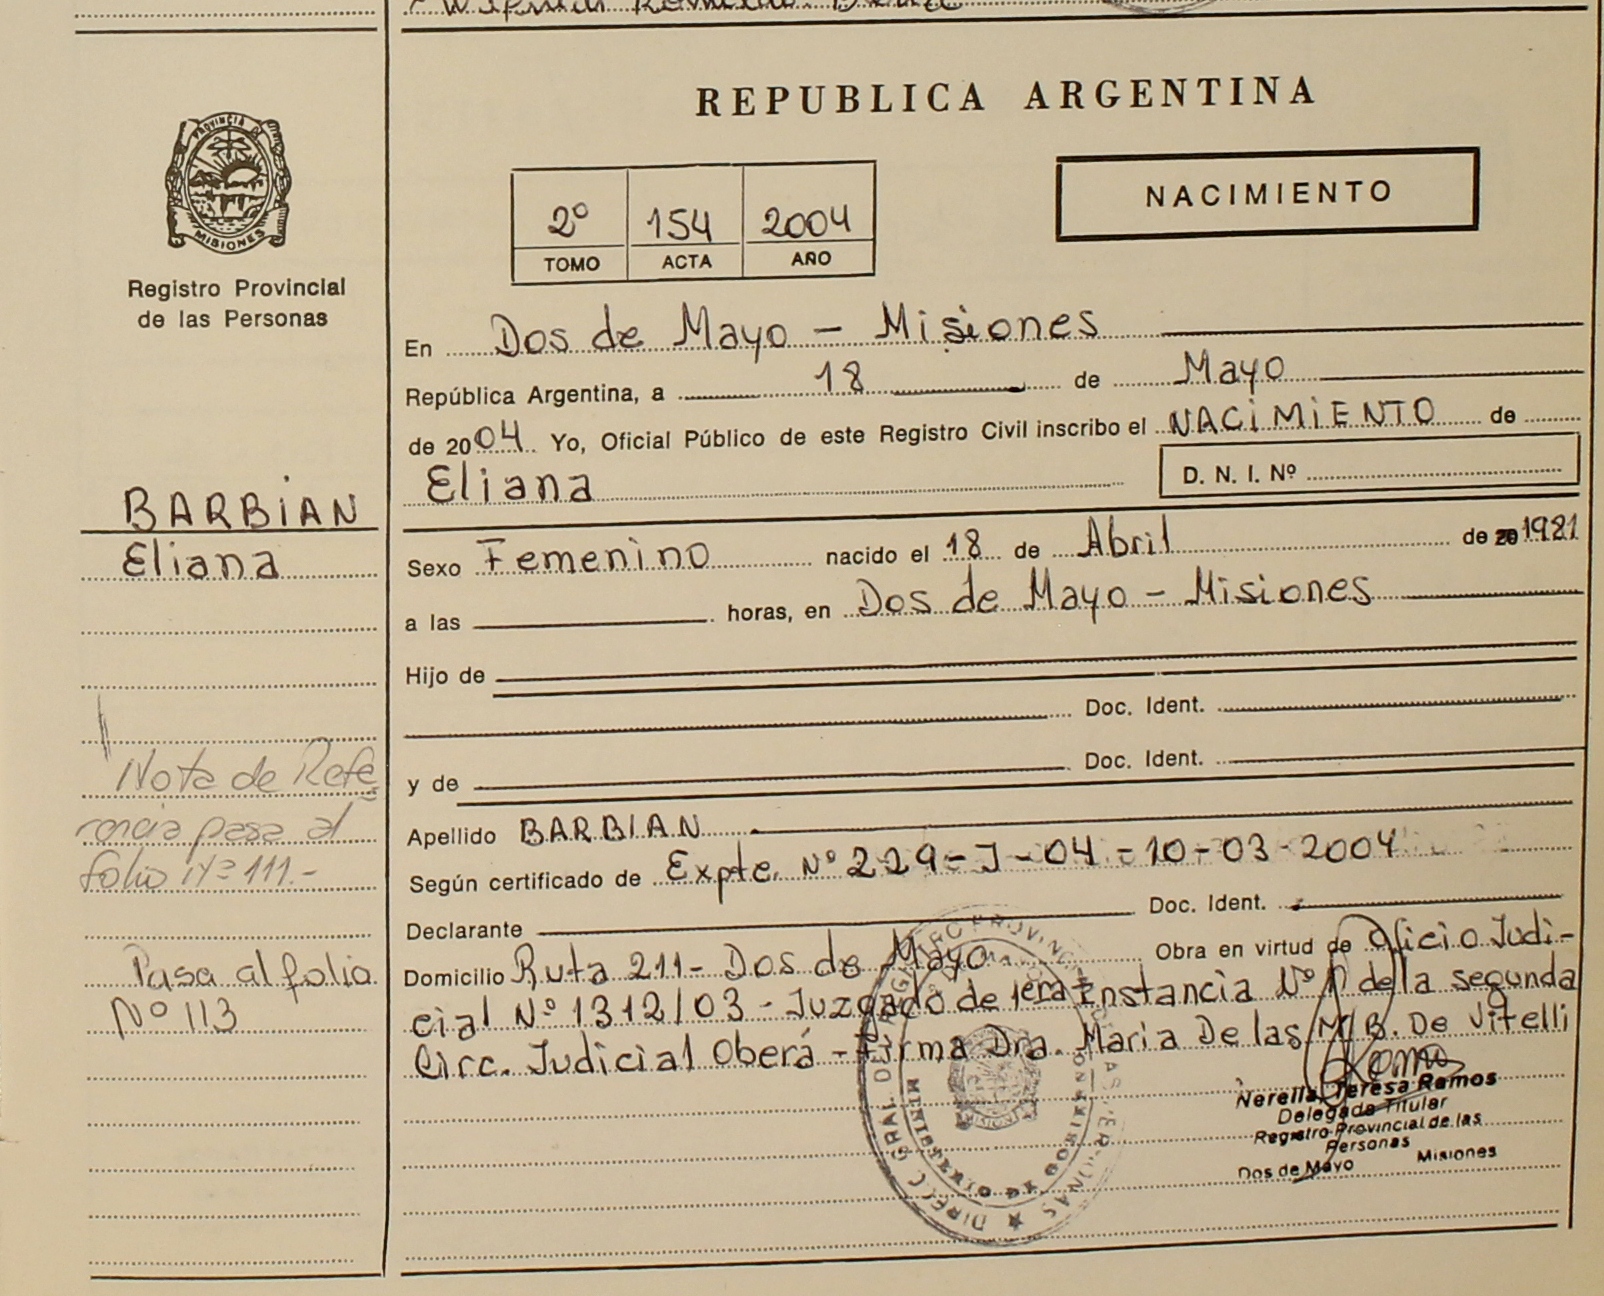 REPUBLICA ARGENTINA
PROVINCIA DE
MISIONES
Registro Provincial
de las Personas
2º 154 2004
TOMO ACTA AÑO
NACIMIENTO
En Dos de Mayo - Misiones
República Argentina, a 18 de Mayo
de 2004 Yo, Oficial Público de este Registro Civil inscribo el NACIMIENTO de
Eliana D. N. I. Nº
BARBIAN
Eliana
Sexo Femenino nacido el 18 de Abril de 20 1981
a las horas, en Dos de Mayo - Misiones
Hijo de
Doc. Ident.
y de Doc. Ident.
Nota de Refe
rencia pasa al
folio Nº 111.-
Apellido BARBIAN
Según certificado de Expte. Nº 229-J-04-10-03-2004
Declarante Doc. Ident.
Pasa al folio
Nº 113
Domicilio Ruta 211- Dos de Mayo Obra en virtud de Oficio Judi-
cial Nº 1312/03 - Juzgado de 1era Instancia Nº 1 de la segunda
Circ. Judicial Oberá - Firma Dra. Maria De las M. B. De Vitelli
Nerella Teresa Ramos
Delegada Titular
Registro Provincial de las
Personas
Dos de Mayo Misiones